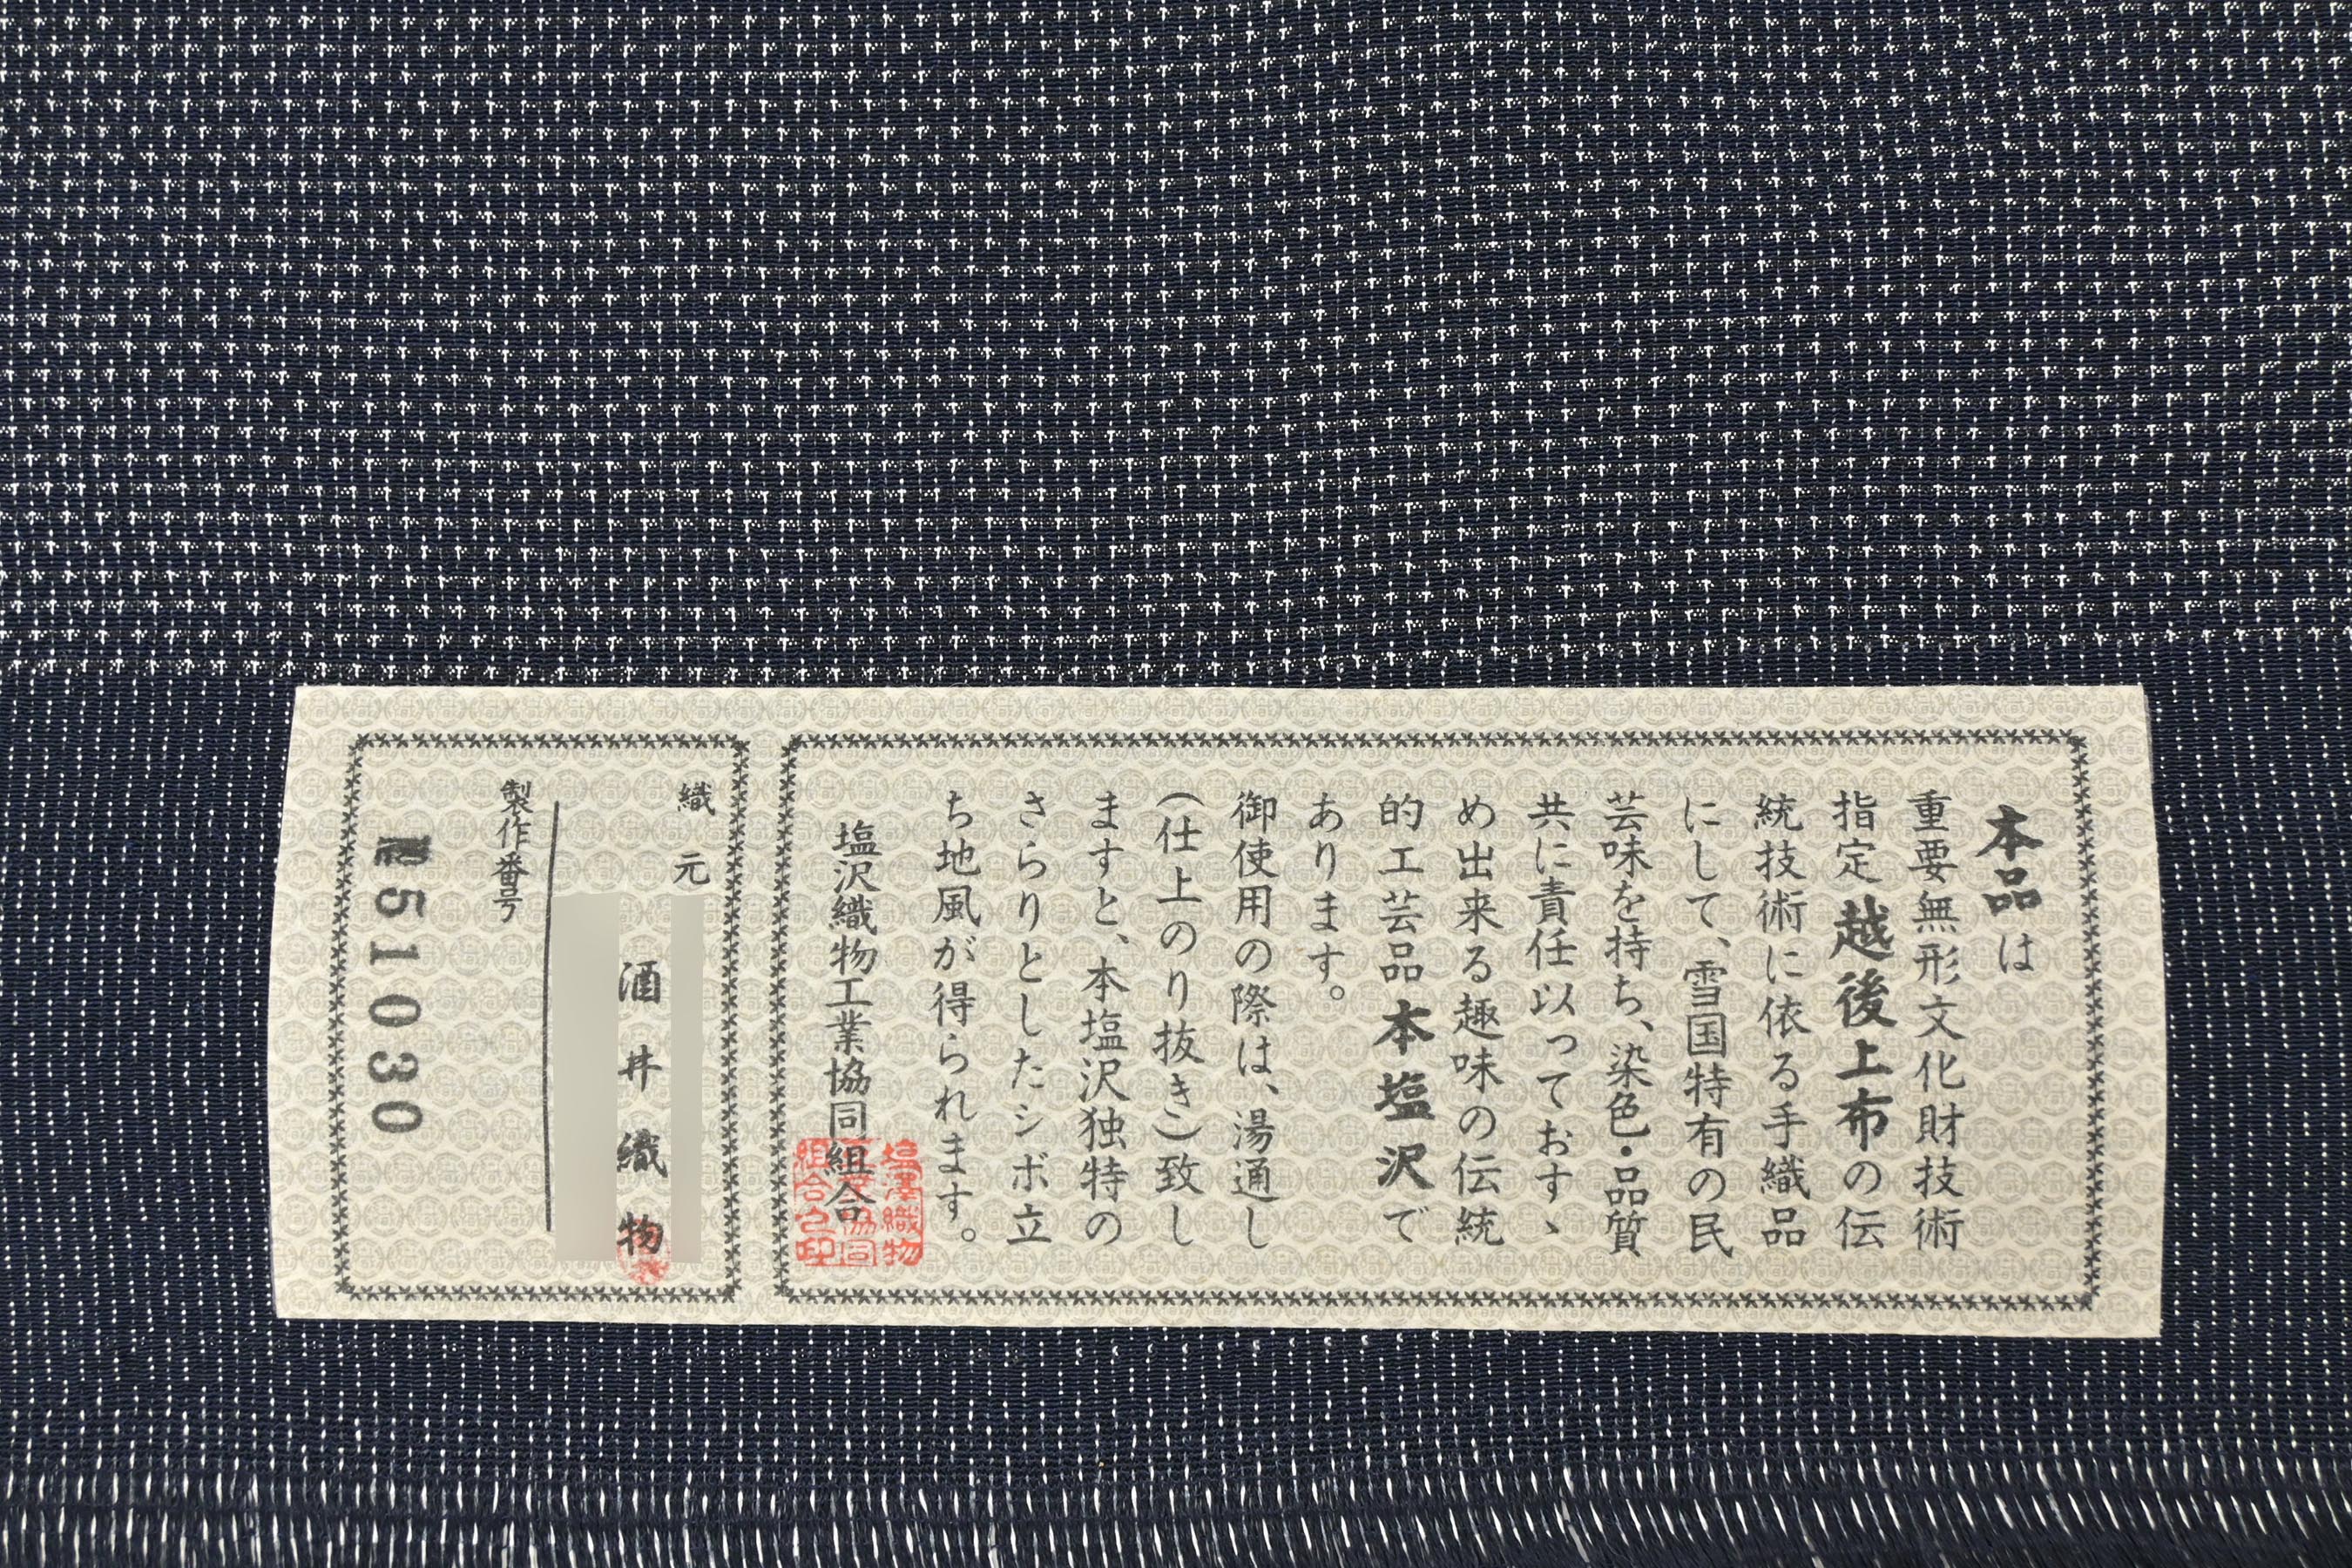 本品は
重要無形文化財技術
指定越後上布の伝
統技術に依る手織品
にして、雪国特有の民
芸味を持ち、染色・品質
共に責任以っておすゝ
め出来る趣味の伝統
的工芸品本塩沢で
あります。
御使用の際は、湯通し
(仕上のり抜き)致し
ますと、本塩沢独特の
さらりとしたシボ立
ち地風が得られます。
塩沢織物工業協同組合
塩澤織物
工業協同
組合之印
織元
酒井織物
製作番号
51030